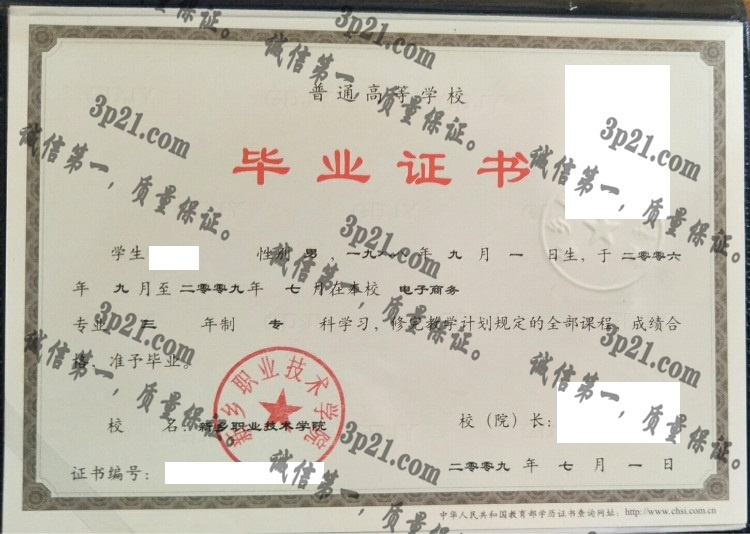 普通高等学校
毕业证书
学生 性别 男 ,一九八八年 九 月 一 日生,于 二零零六
年 九 月至 二零零九 年 七 月在本校 电子商务
专业 三 年制 专 科学习,修完教学计划规定的全部课程,成绩合
格,准予毕业。
校 名:新乡职业技术学院
校(院)长:
证书编号:
二零零九 年 七 月 一 日
中华人民共和国教育部学历证书查询网址:http://www.chsi.com.cn
新乡职业技术学院
3p21.com
诚信第一,质量保证。
3p21.com
诚信第一,质量保证。
3p21.com
诚信第一,质量保证。
3p21.com
诚信第一,质量保证。
3p21.com
诚信第一,质量保证。
3p21.com
诚信第一,质量保证。
3p21.com
诚信第一,质量保证。
3p21.com
诚信第一,质量保证。